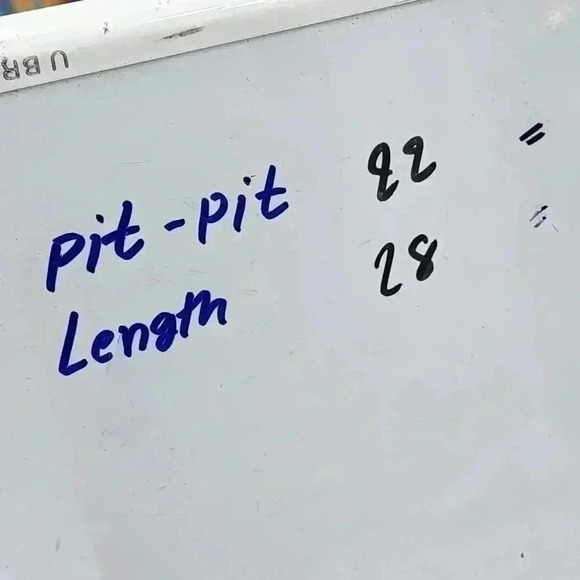 UBR
pit-pit 22 "
Length 28 "